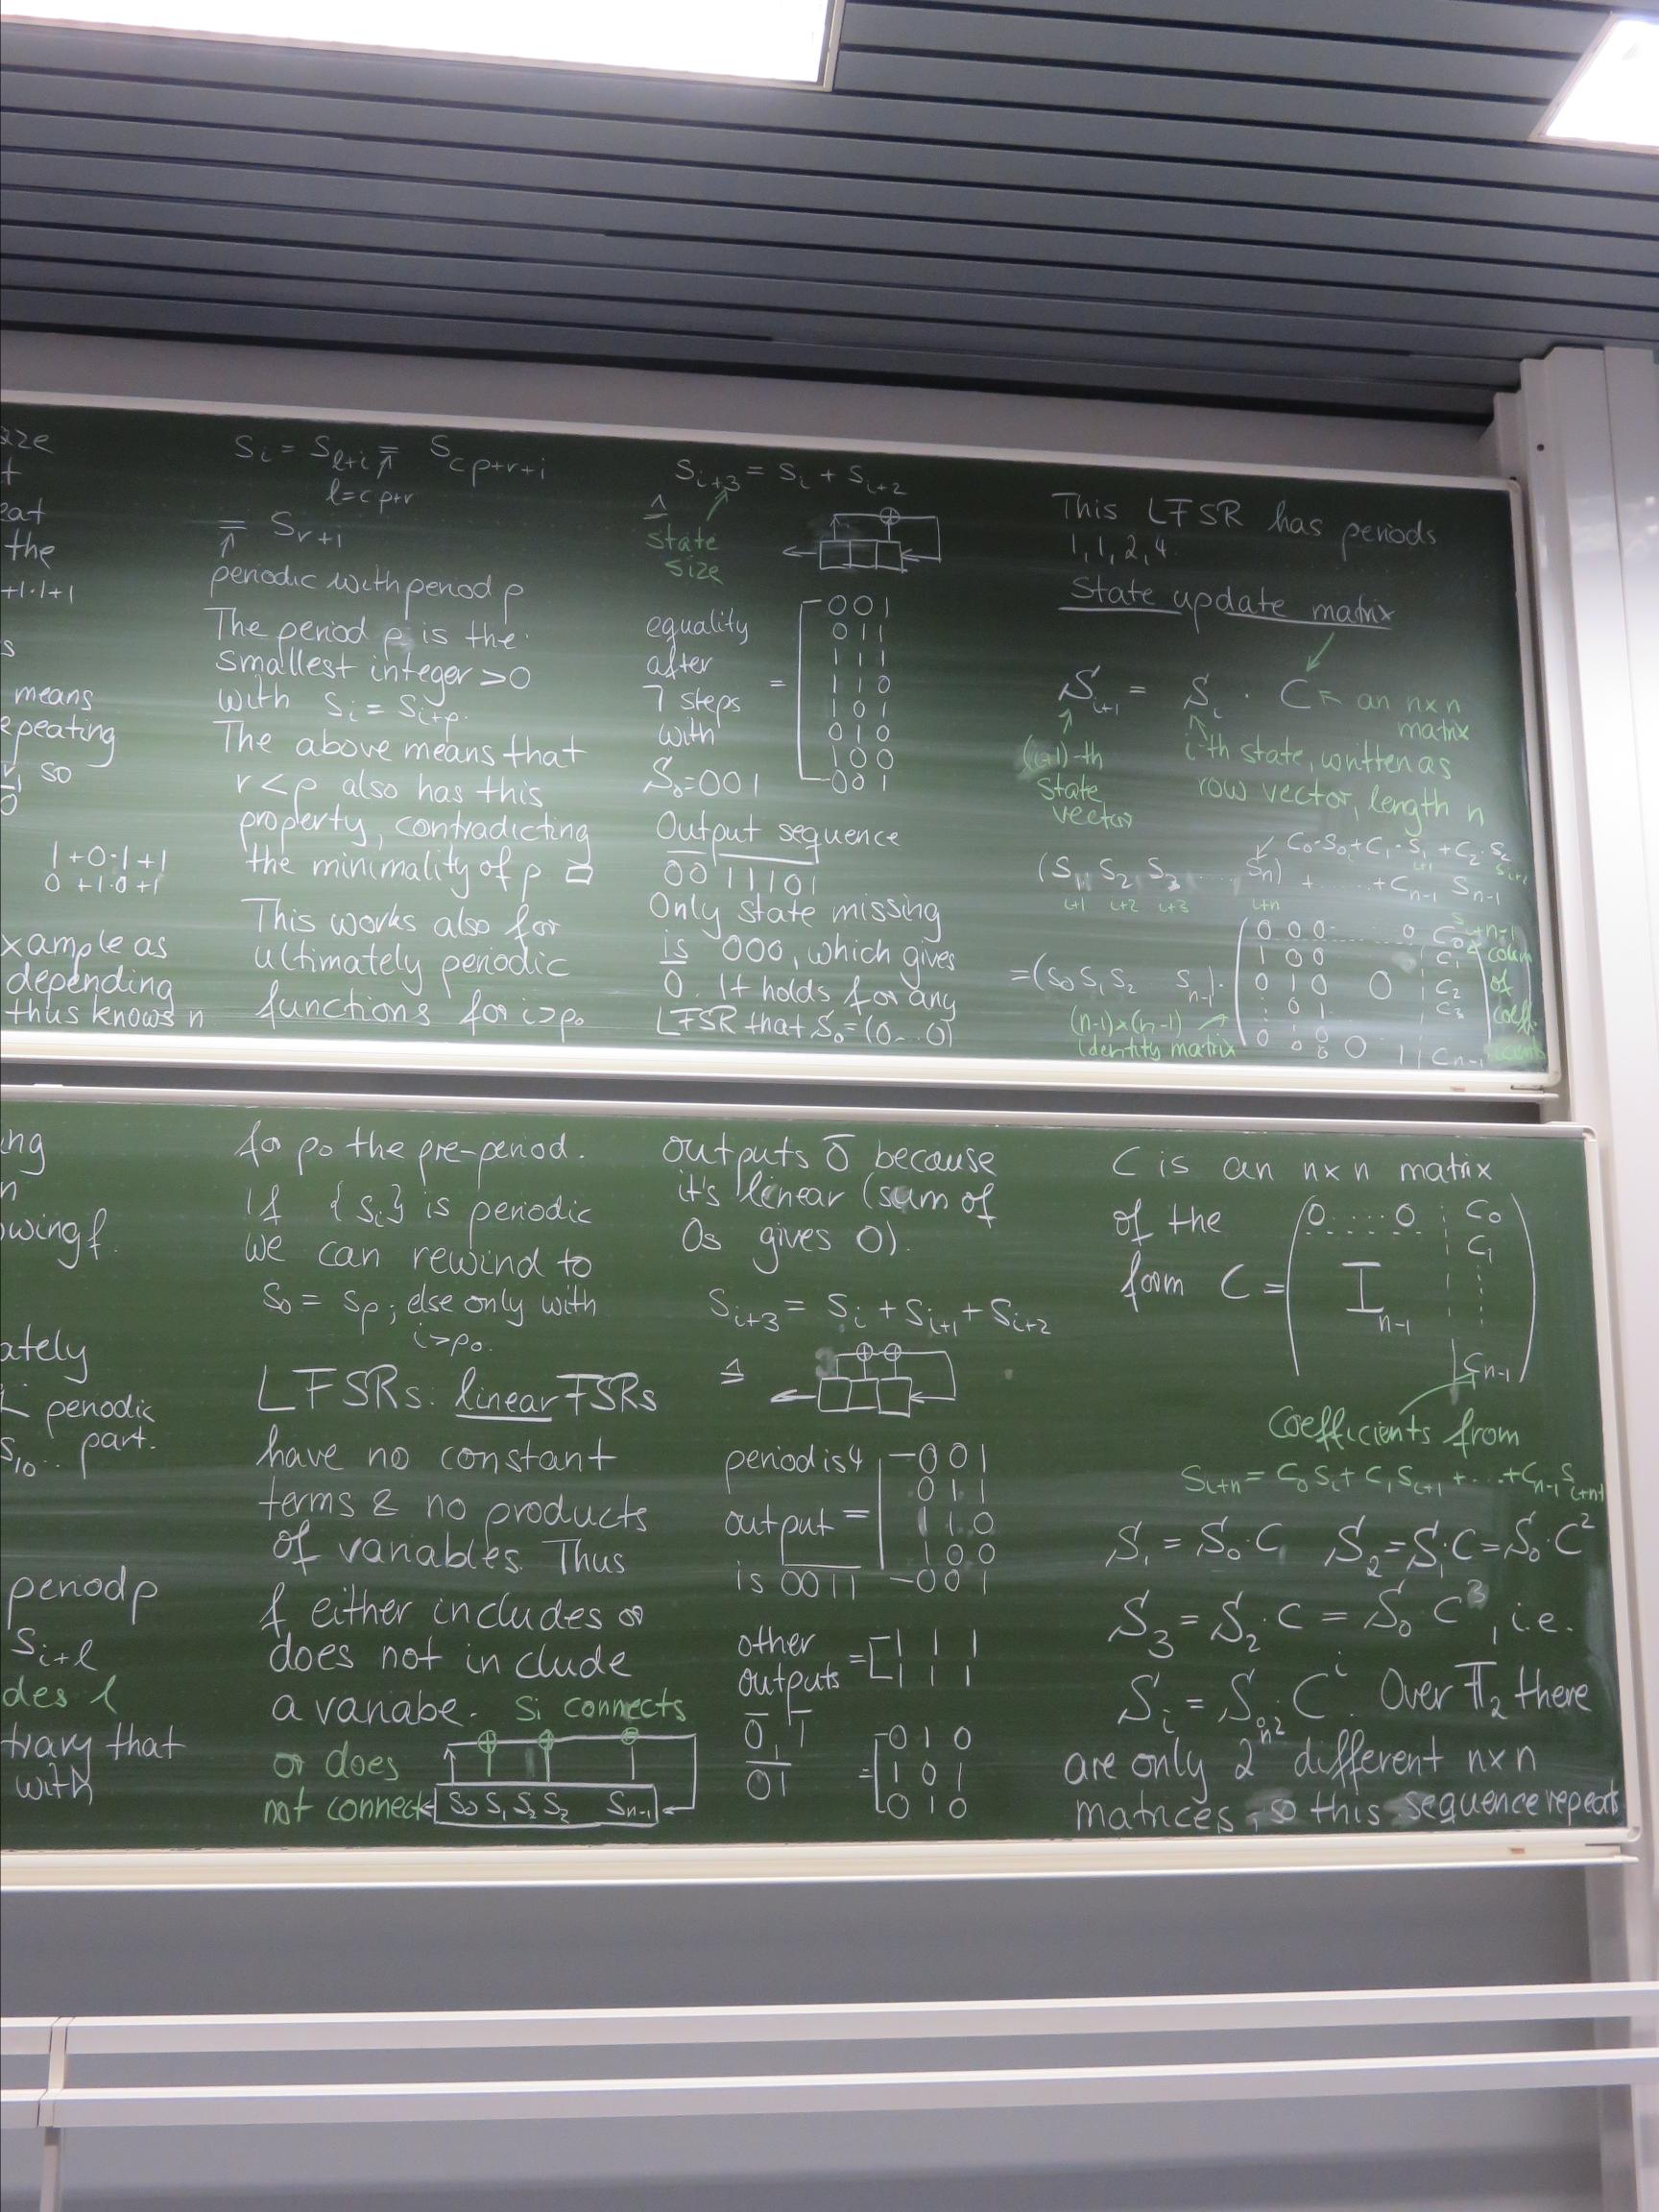 ize
t
eat
the
+1·1+1
s
means
epeating
so
0
1+0·1+1
0+1·0+1
xample as
depending
thus knows n
Si = Sℓ+i = Scp+r+i
ℓ=cp+r
= Sr+1
periodic with period p
The period p is the
smallest integer >0
with Si = Si+p.
The above means that
r<p also has this
property, contradicting
the minimality of p □
This works also for
ultimately periodic
functions for i>p0
Si+3 = Si + Si+2
≙
state
size
equality
after
7 steps
with
S0=001
=
001
011
111
110
101
010
100
001
Output sequence
0011101
Only state missing
is 000, which gives
0. It holds for any
LFSR that S0=(0...0)
This LFSR has periods
1,1,2,4.
State update matrix
Si+1 = Si · C ← an n×n
matrix
(i+1)-th
state
vector
i-th state, written as
row vector, length n
C0·S0+C1·S1+C2·S2
(S1 S2 S3 .... Sn) +......+Cn-1 Sn-1
i+1 i+2 i+3 i+n
=(S0 S1 S2 Sn-1)·
0 0 0 0 C0
1 0 0 C1
0 1 0 0 C2
: 0 1 C3
0 0 0 0 1 Cn-1
column
of
coeff
icients
(n-1)×(n-1)
identity matrix
ing
n
owing f.
ately
periodic
S10.. part.
period p
Si+ℓ
des ℓ
trary that
with
for p0 the pre-period.
If {Si} is periodic
we can rewind to
S0 = Sp; else only with
i>p0.
LFSRs: linear FSRs
have no constant
terms & no products
of variables. Thus
f either includes or
does not include
a variabe. Si connects
or does
not connect
S0 S1 S2 S2 Sn-1
outputs 0 because
it's linear (sum of
0s gives 0).
Si+3 = Si + Si+1 + Si+2
≙
period is 4
output =
is 0011
001
011
110
100
001
other
outputs
=
1 1 1
1 1 1
0, 1
01
=
0 1 0
1 0 1
0 1 0
C is an n×n matrix
of the
form C =
0....0 C0
C1
In-1
Cn-1
Coefficients from
Si+n = C0Si + C1Si+1 + ... + Cn-1Si+n-1
S1 = S0·C, S2=S1·C=S0·C²
S3 = S2·C = S0·C³, i.e.
Si = S0·Cⁱ. Over F2 there
are only 2^n² different n×n
matrices, so this sequence repeats